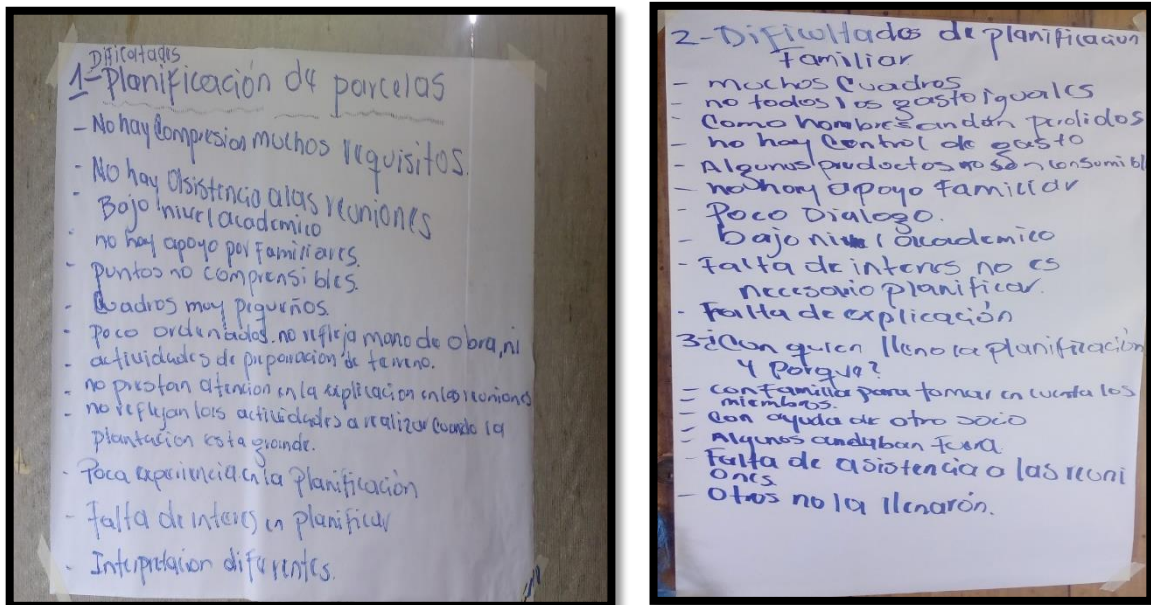 Dificultades
1- Planificación de parcelas
- No hay Compresion muchos requisitos.
- No hay asistencia a las reuniones
- Bajo nivel academico
- no hay apoyo por Familiares.
- puntos no comprensibles.
- Cuadros muy pequeños.
- poco ordenados. no refleja mano de obra, ni
- actividades de preparacion de terreno.
- no prestan atencion en la explicacion en las reuniones
- no reflejan las actividades a realizar cuando la
plantacion esta grande.
- Poca experiencia en la Planificación
- Falta de interes en planificar
- Interpretacion diferentes.
2- Dificultades de planificacion
Familiar
- muchos Cuadros
- no todos los gasto iguales
- Como hombres andan perdidos
- no hay Control de gasto
- Algunos productos no son consumibl
- no hay apoyo Familiar
- Poco Dialogo.
- bajo nivel academico
- Falta de interes no es
necesario planificar.
- Falta de explicación
3- ¿Con quien lleno la planificación
y porque?
- con Familia para tomar en cuenta los
miembros.
- Con ayuda de otro socio
- Algunos andaban Fuera.
- Falta de asistencia a las reuni
ones
- Otros no la llenarón.